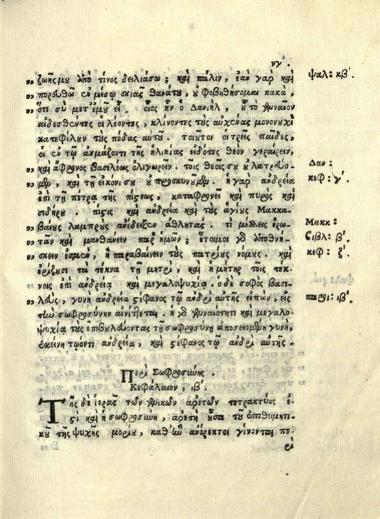 νγ´.
„ ζωῆς μου ἀπὸ τίνος δειλιάσω; καὶ πάλιν, ἐὰν γὰρ καὶ
„ πορευθῶ ἐν μέσῳ σκιᾶς θανάτου, οὐ φοβηθήσομαι κακά,
„ ὅτι σὺ μετ' ἐμοῦ εἶ. οἷος ἦν ὁ Δανιήλ, οὗ τὸ γενναῖον
αἰδεσθέντες οἱ λέοντες, κλίνοντες τοὺς αὐχένας μονονουχὶ
κατεφίλουν τοὺς πόδας αὐτοῦ. τοιοῦτοι οἱ τρεῖς παῖδες,
οἱ ἐν τῷ ἀκμάζοντι τῆς ἡλικίας εἰδότες θεὸν γεραίρειν,
καὶ ἄφρονος βασιλέως ὀλιγωρεῖν. τοῖς θεοῖς σου οὐ λατρεύο-
μεν, καὶ τῇ εἰκόνι σου οὐ προσκυνοῦμεν. ἡ γὰρ ἀνδρεία
ἐπὶ τῇ πέτρᾳ τῆς πίστεως, καταφρονεῖ καὶ πυρὸς καὶ
σιδήρου. πίστις καὶ ἀνδρεία καὶ τοὺς ἁγίους Μακκα-
βαίους λαμπροὺς ἀνέδειξεν ἀθλητάς. τί μέλλεις ἐρω-
τᾶν καὶ μανθάνειν παρ' ἡμῶν; ἕτοιμοι γὰρ ἀποθνή-
σκειν ἐσμὲν, ἢ παραβαίνειν τοὺς πατρῴους νόμους, καὶ
ἐρρίζου τὰ τέκνα τῇ μητρὶ, καὶ ἡ μήτηρ τοῖς τέκ-
νοις ἐπὶ ἀνδρείᾳ καὶ μεγαλοψυχίᾳ. ὁ δὲ σοφὸς βασι-
λεὺς, γυνὴ ἀνδρεία στέφανος τῷ ἀνδρὶ αὐτῆς εἰπών, εἰς
τὴν σωφροσύνην αἰνίττεται. ἡ γὰρ γενναιότητι καὶ μεγαλο-
ψυχίᾳ τοὺς ἐπιβουλεύοντας τῇ σωφροσύνῃ ἀποσειομένη γυνή,
ἐκείνη τῷ ὄντι ἀνδρεία, καὶ στέφανος τῷ ἀνδρὶ αὐτῆς.
Περὶ Σωφροσύνης.
Κεφάλαιον, ιβ´.
Τῆς δὲ ἱερᾶς τῶν γενικῶν ἀρετῶν τετρακτύος ἐ-
στὶ καὶ ἡ σωφροσύνη, ἀρετὴ οὖσα τοῦ ἐπιθυμητι-
κοῦ τῆς ψυχῆς μορίου, καθ' ἣν ἀνόρεκτοι γίνονται πε-
ρὶ
ψαλ: κβ´.
Δαν:
κεφ: γ´.
Μακκ:
Βιβλ: β´.
κεφ: ζ´.
παροι: ιβ´.